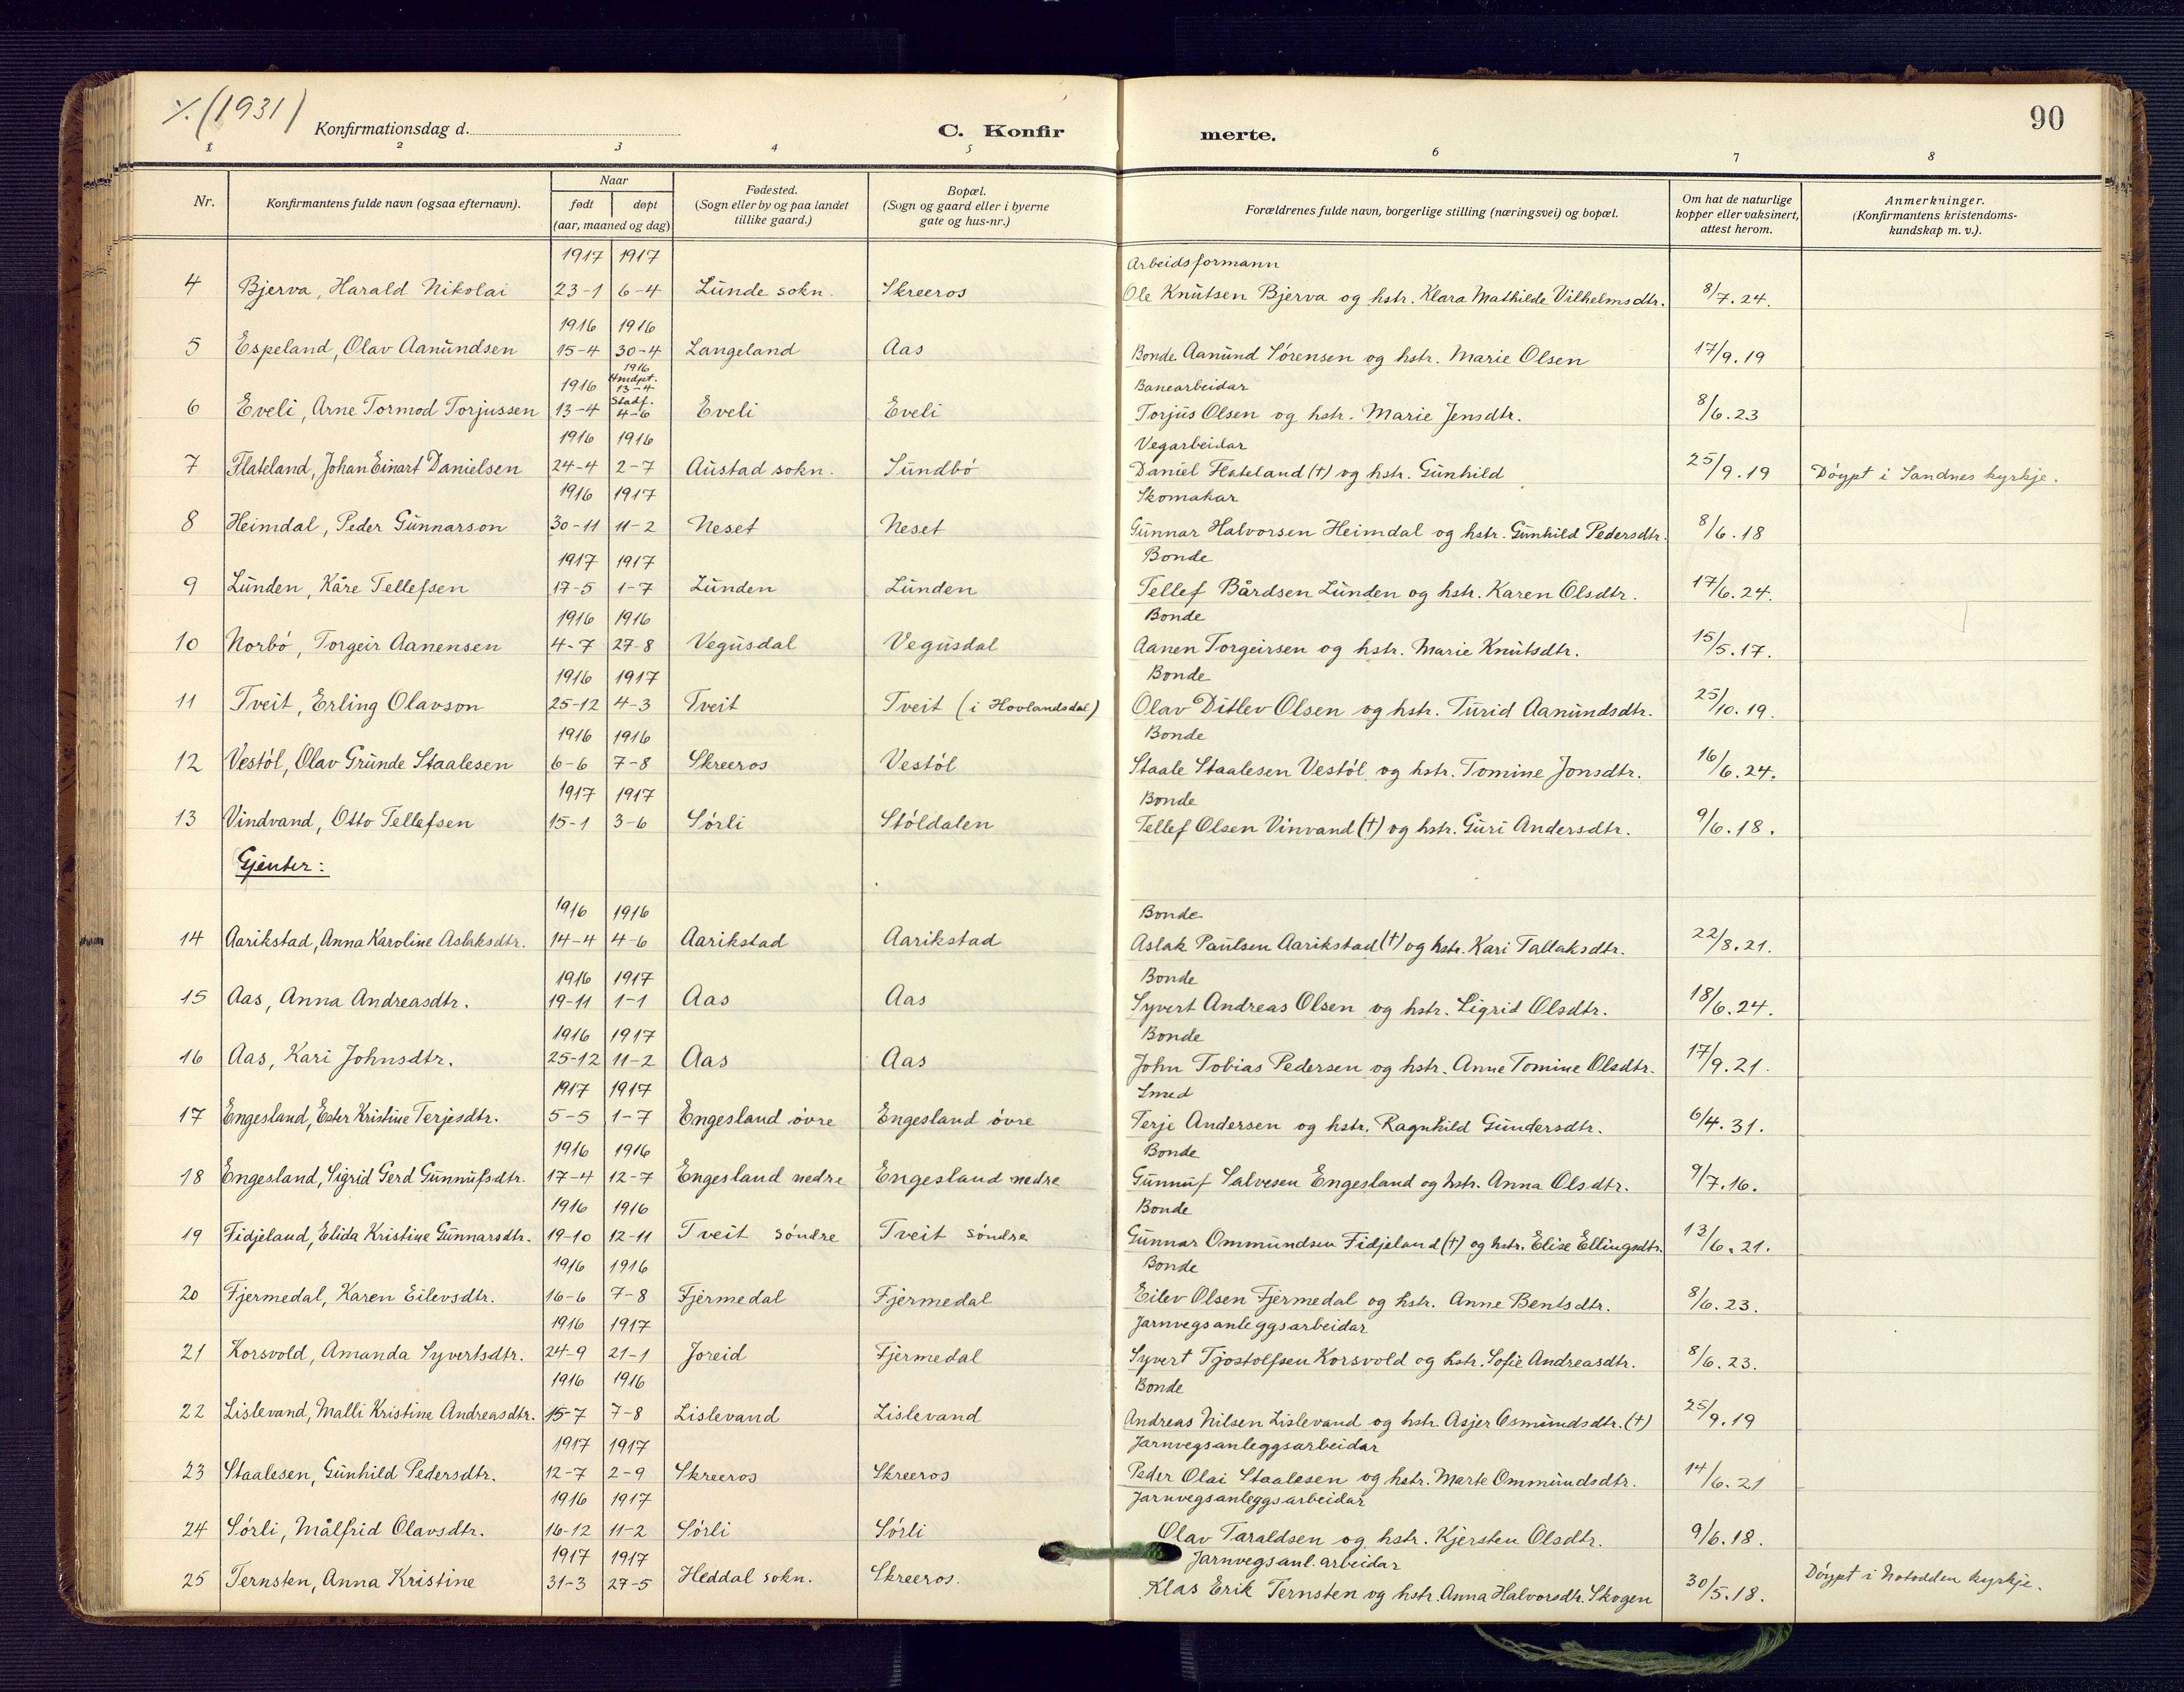 ٪ (1931)
Konfirmationsdag d.
C. Konfir
merte.
90
1 2 3 4 5 6 7 8
Nr.
Konfirmantens fulde navn (ogsaa efternavn).
Naar
født døpt
(aar, maaned og dag)
Fødested.
(Sogn eller by og paa landet
tillike gaard.)
Bopæl.
(Sogn og gaard eller i byerne
gate og hus-nr.)
Forældrenes fulde navn, borgerlige stilling (næringsvei) og bopæl.
Om hat de naturlige
kopper eller vaksinert,
attest herom.
Anmerkninger.
(Konfirmantens kristendoms-
kundskap m. v.).
1917 1917 Arbeidsformann
4 Bjerva, Harald Nikolai 23-1 6-4 Lunde sokn. Skreeros Ole Knutsen Bjerva og hstr. Klara Mathilde Vilhelmsdtr. 8/7.24.
1916 1916
5 Espeland, Olav Aanundsen 15-4 30-4 Langeland Aas Bonde Aanund Sörensen og hstr. Marie Olsen 17/9.19
1916 1916 Hmdpt. 13-4 Stadf. Banearbeidar
6 Eveli, Arne Tormod Torjussen 13-4 4-6 Eveli Eveli Torjus Olsen og hstr. Marie Jensdtr. 8/6.23
1916 1916 Vegarbeidar
7 Flateland, Johan Einart Danielsen 24-4 2-7 Austad sokn. Sundbö Daniel Flateland (†) og hstr. Gunhild 25/9.19 Döypt i Sandnes kyrkje.
1916 1917 Skomakar
8 Heimdal, Peder Gunnarson 30-11 11-2 Neset Neset Gunnar Halvorsen Heimdal og hstr. Gunhild Pedersdtr. 8/6.18
1917 1917 Bonde
9 Lunden, Kåre Tellefsen 17-5 1-7 Lunden Lunden Tellef Bårdsen Lunden og hstr. Karen Olsdtr. 17/6.24.
1916 1916 Bonde
10 Norbö, Torgeir Aanensen 4-7 27-8 Vegusdal Vegusdal Aanen Torgeirsen og hstr. Marie Knutsdtr. 15/5.17.
1916 1917 Bonde
11 Tveit, Erling Olavson 25-12 4-3 Tveit Tveit (i Hovlandsdal) Olav Ditlev Olsen og hstr. Turid Aanundsdtr. 25/10.19.
1916 1916 Bonde
12 Vestöl, Olav Grunde Staalesen 6-6 7-8 Skreeros Vestöl Staale Staalesen Vestöl og hstr. Tomine Jonsdtr. 16/6.24.
1917 1917 Bonde
13 Vindvand, Otto Tellefsen 15-1 3-6 Sörli Stöldalen Tellef Olsen Vinvand (†) og hstr. Guri Andersdtr. 9/6.18.
Gjenter:
1916 1916 Bonde
14 Aarikstad, Anna Karoline Aslaksdtr. 14-4 4-6 Aarikstad Aarikstad Aslak Paulsen Aarikstad (†) og hstr. Kari Tallaksdtr. 22/8.21.
1916 1917 Bonde
15 Aas, Anna Andreasdtr. 19-11 1-1 Aas Aas Syvert Andreas Olsen og hstr. Sigrid Olsdtr. 18/6.24.
1916 1917 Bonde
16 Aas, Kari Johnsdtr. 25-12 11-2 Aas Aas John Tobias Pedersen og hstr. Anne Tomine Olsdtr. 17/9.21.
1917 1917 Smed
17 Engesland, Ester Kristine Terjesdtr. 5-5 1-7 Engesland övre Engesland övre Terje Andersen og hstr. Ragnhild Gundersdtr. 6/4.31.
1916 1916 Bonde
18 Engesland, Sigrid Gerd Gunnufsdtr. 17-4 12-7 Engesland nedre Engesland nedre Gunnuf Salvesen Engesland og hstr. Anna Olsdtr. 9/7.16.
1916 1916 Bonde
19 Fidjeland, Elida Kristine Gunnarsdtr. 19-10 12-11 Tveit söndre Tveit söndre Gunnar Ommundsen Fidjeland (†) og hstr. Elise Ellingsdtr. 13/6.21.
1916 1916 Bonde
20 Fjermedal, Karen Eilevsdtr. 16-6 7-8 Fjermedal Fjermedal Eilev Olsen Fjermedal og hstr. Anne Bentsdtr. 8/6.23.
1916 1917 Jarnvegsanleggsarbeidar
21 Korsvold, Amanda Syvertsdtr. 24-9 21-1 Joreid Fjermedal Syvert Tjostolfsen Korsvold og hstr. Sofie Andreasdtr. 8/6.23.
1916 1916 Bonde
22 Lislevand, Malli Kristine Andreasdtr. 15-7 7-8 Lislevand Lislevand Andreas Nilsen Lislevand og hstr. Asjer Osmundsdtr. (†) 25/9.19
1917 1917 Jarnvegsanleggsarbeidar
23 Staalesen, Gunhild Pedersdtr. 12-7 2-9 Skreeros Skreeros Peder Olai Staalesen og hstr. Marte Ommundsdtr. 14/6.21
1916 1917 Jarnvegsanleggsarbeidar
24 Sörli, Målfrid Olavsdtr. 16-12 11-2 Sörli Sörli Olav Taraldsen og hstr. Kjersten Olsdtr. 9/6.18.
1917 1917 Jarnvegsanl. arbeidar
25 Ternsten, Anna Kristine 31-3 27-5 Heddal sokn. Skreeros. Klas Erik Ternsten og hstr. Anna Halvorsdtr. Skogen 30/5.18. Döypt i Notodden kyrkje.